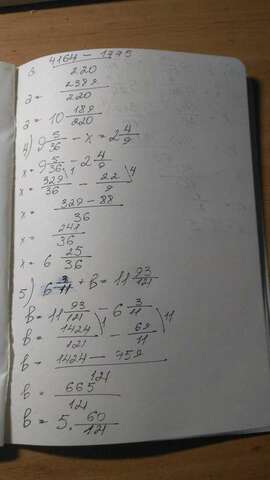 a = (4164 - 1775)/220
a = 2389/220
a = 10 189/220
4) 9 5/36 - x = 2 4/9
x = 9 5/36 - 2 4/9
x = 329/36 - 22/9
x = (329 - 88)/36
x = 241/36
x = 6 25/36
5) 6 3/11 + b = 11 93/121
b = 11 93/121 - 6 3/11
b = 1424/121 - 69/11
b = (1424 - 759)/121
b = 665/121
b = 5. 60/121